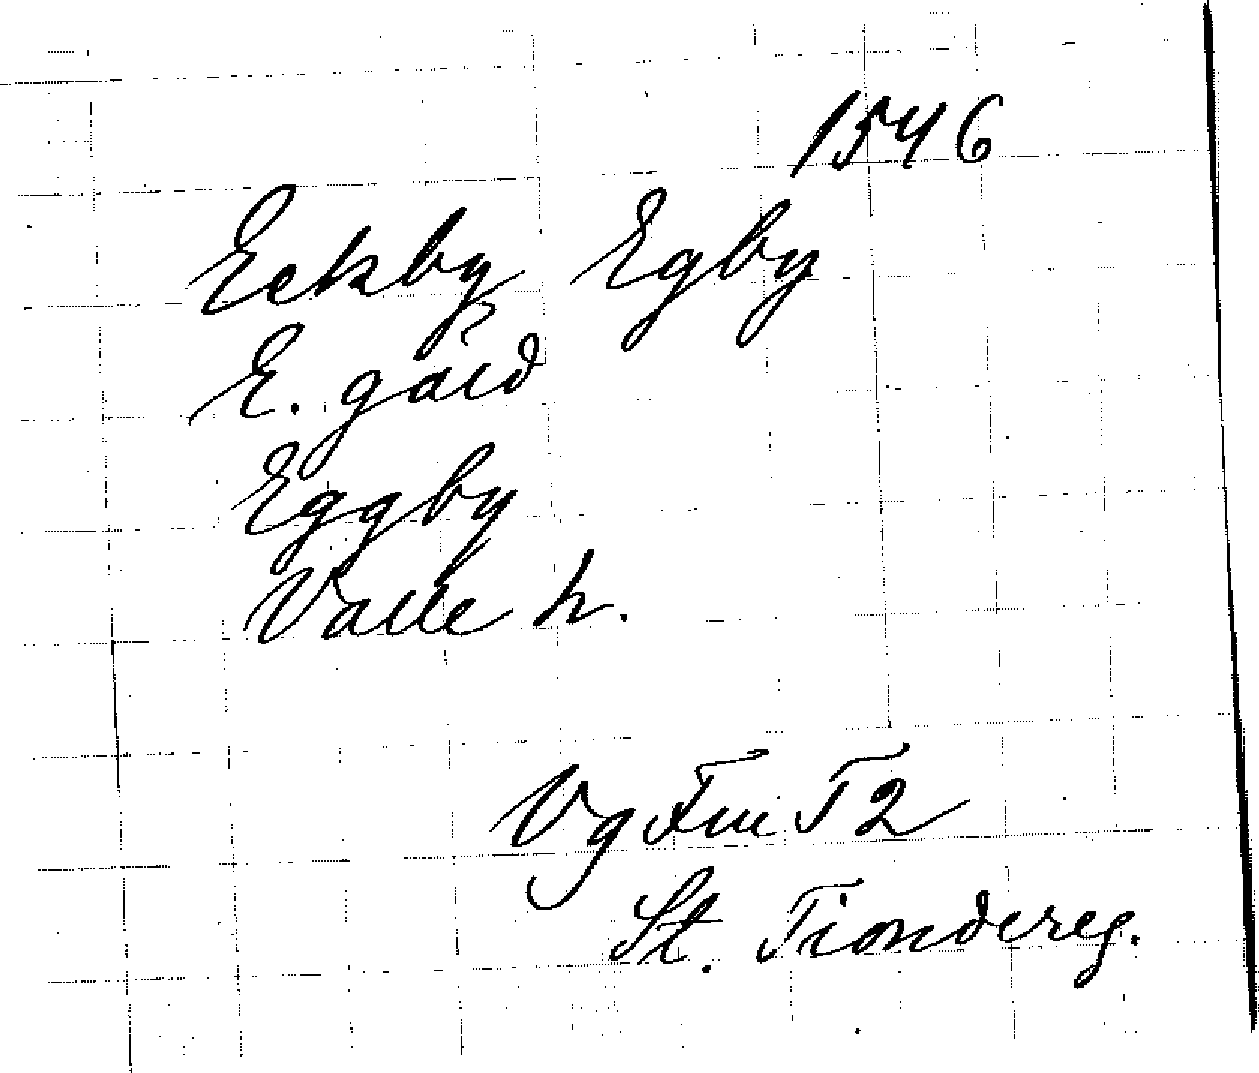 1546
Eckby Egby
E. gård
Eggby
Valle h.
Vg T2
St. Tiondereg.